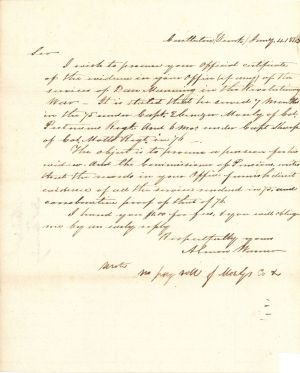 Sir
I wish to procure your Official certificate
of the evidence in your Office (if any) of the
services of Dan Manning in the Revolutionary
War – It is stated that he served 7 Months
in the 75 under Capt Ebenzr Mosely of Col.
Putnams Regt. And 6 mos under Capt
of Col. Motts Regt. in 76
The object is to procure a pension for his
widow. And the Commissioner of Pensions, writes
that the records in your Office furnishes
evidence of all the services rendered in 75, and
corroborative proof of that of 76
I hand you for fees, & you will oblige
me by an early reply
Respectfully yours
Almon Warner
Wrote
no pay roll of Moslys Co &